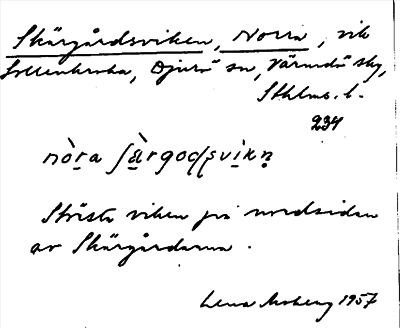 Skärgårdsviken, Norra, vik
Sollenkroka, Djurö sn, Värmdö skg,
Sthlms. l.
234
nò̱ra ʃæ̀rgoḍṣvi̱kṇ
Största viken på nordsidan
av Skärgårdarna.
Lena Moberg 1957